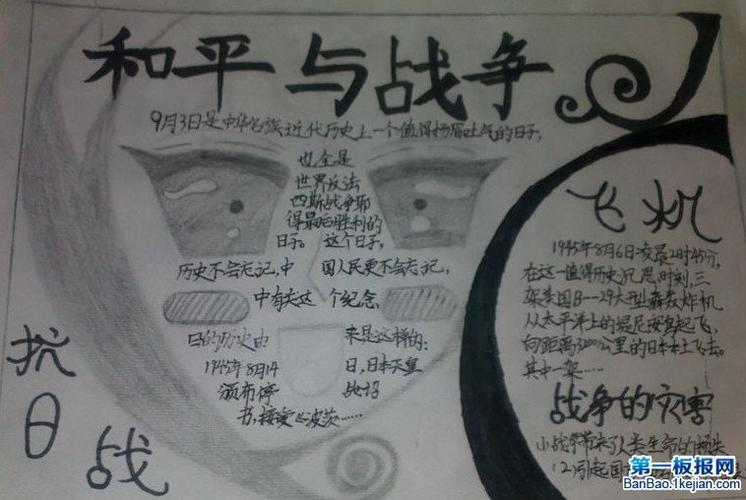 和平与战争
9月3日是中华名族近代历史上一个值得扬眉吐气的日子,
也全是
世界反法
西斯战争取
得最后胜利的
日子。这个日子,
历史不会忘记,中国人民更不会忘记,
中有关这个纪念
日的历史由来是这样的:
1945年8月14日,日本天皇
颁布停战诏
书,接受《波茨……
抗日战
飞机
1945年8月6日凌晨2时45分,
在这一值得历史沉思时刻,三
架美国B—29大型轰炸机
从太平洋上的提尼安岛起飞,
向距离3200公里的日本本土飞去。
其中一架……
战争的灾害
(1)战争带来了人类生命的损失
(2)引起国
第一板报网
BanBao.1kejian.com